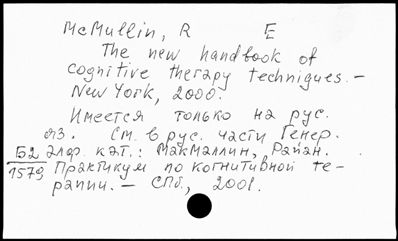 McMullin, R E
The new handbook of
cognitive therapy techniques. –
New York, 2000.
Имеется только на рус.
яз. См. в рус. части Генер.
Б2 алф. кат.: МакМаллин, Райан.
1579 Практикум по когнитивной те-
рапии. – СПб., 2001.